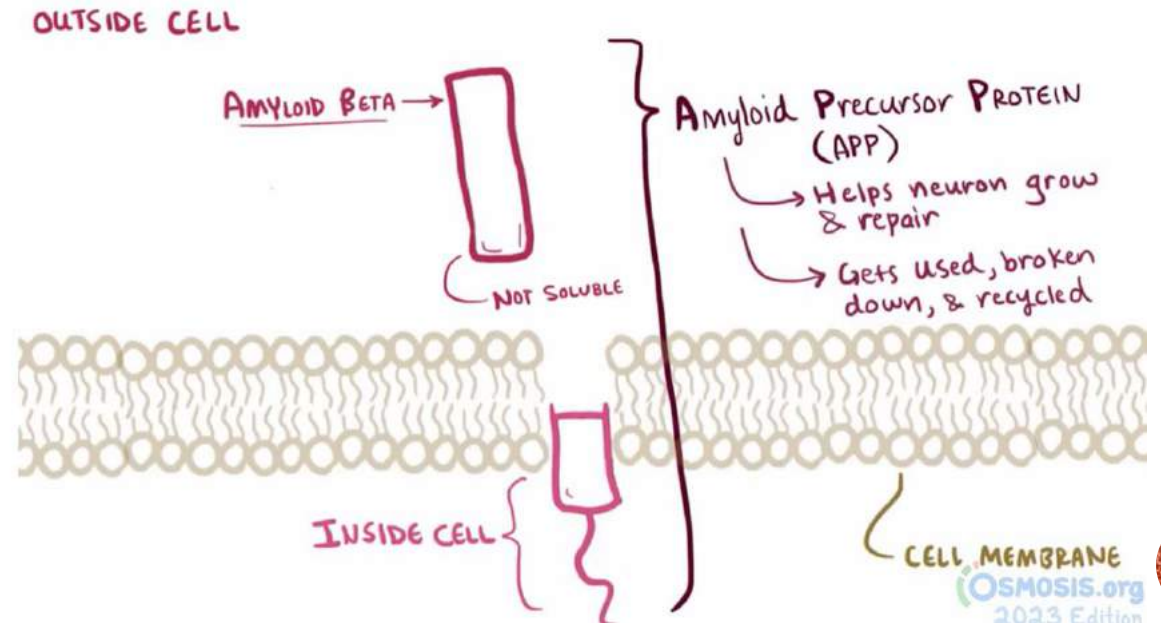 OUTSIDE CELL
AMYLOID BETA
NOT SOLUBLE
Amyloid Precursor PROTEIN
(APP)
Helps neuron grow
& repair
Gets used, broken
down, & recycled
INSIDE CELL
CELL MEMBRANE
OSMOSIS.org
2023 Edition